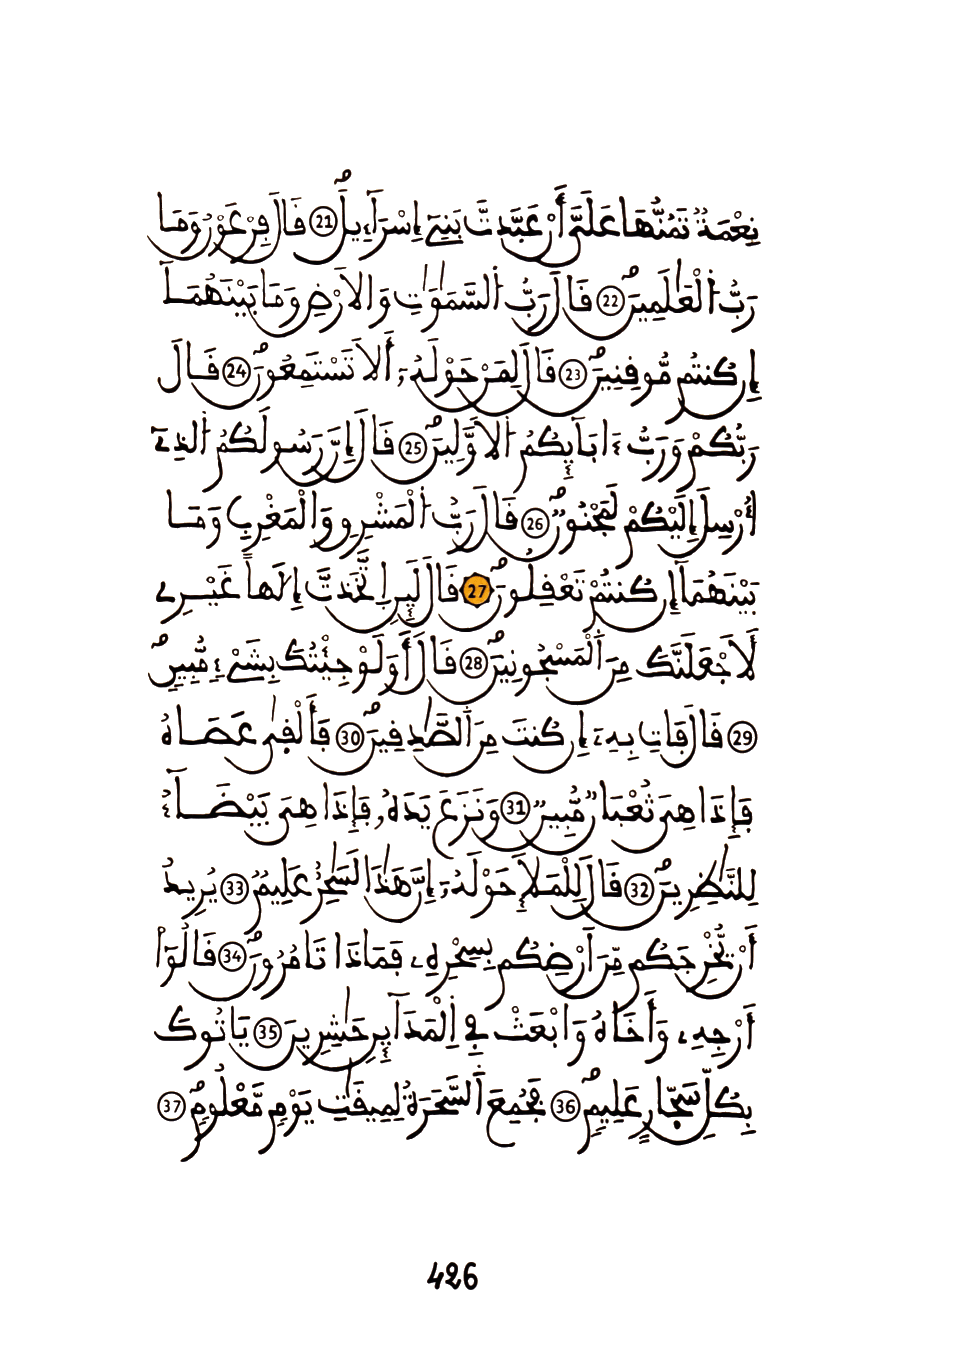 نِعْمَةٌ تَمُنُّهَا عَلَيَّ أَنْ عَبَّدتَّ بَنِےٓ إِسْرَآءِيلَ 21 قَالَ فِرْعَوْنُ وَمَا
رَبُّ اُلْعَٰلَمِينَ 22 قَالَ رَبُّ اُلسَّمَٰوَٰتِ وَالَارْضِ وَمَا بَيْنَهُمَآ
إِن كُنتُم مُّوقِنِينَ 23 قَالَ لِمَنْ حَوْلَهُۥٓ أَلَا تَسْتَمِعُونَ 24 قَالَ
رَبُّكُمْ وَرَبُّ ءَابَآئِكُمُ اُلَاوَّلِينَ 25 قَالَ إِنَّ رَسُولَكُمُ اُلذِےٓ
أُرْسِلَ إِلَيْكُمْ لَمَجْنُونٌ 26 قَالَ رَبُّ اُلْمَشْرِقِ وَالْمَغْرِبِ وَمَا
بَيْنَهُمَآ إِن كُنتُمْ تَعْقِلُونَ 27 قَالَ لَئِنِ اِتَّخَذتَّ إِلَٰهاً غَيْرِے
لَأَجْعَلَنَّكَ مِنَ اَلْمَسْجُونِينَ 28 قَالَ أَوَلَوْ جِئْتُكَ بِشَےْءٍ مُّبِينٍ
29 قَالَ فَاتِ بِهِۦٓ إِن كُنتَ مِنَ اَلصَّٰدِقِينَ 30 فَأَلْقَىٰ عَصَاهُ
فَإِذَا هِيَ ثُعْبَانٌ مُّبِينٌ 31 وَنَزَعَ يَدَهُۥ فَإِذَا هِيَ بَيْضَآءُ
لِلنَّٰظِرِينَ 32 قَالَ لِلْمَلَإِ حَوْلَهُۥٓ إِنَّ هَٰذَا لَسَٰحِرٌ عَلِيمٌ 33 يُرِيدُ
أَنْ يُّخْرِجَكُم مِّنَ اَرْضِكُم بِسِحْرِهِۦ فَمَاذَا تَامُرُونَ 34 قَالُوٓاْ
أَرْجِهِۦ وَأَخَاهُ وَابْعَثْ فِے اِلْمَدَآئِنِ حَٰشِرِينَ 35 يَاتُوكَ
بِكُلِّ سَحّ۪ارٍ عَلِيمٍ 36 فَجُمِعَ اَلسَّحَرَةُ لِمِيقَٰتِ يَوْمٍ مَّعْلُومٍ 37
426